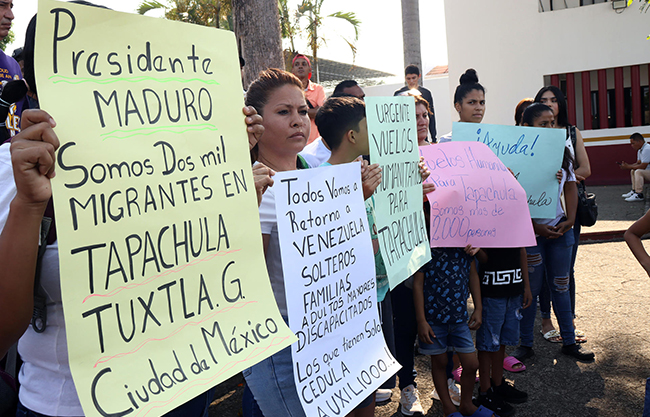 Presidente
MADURO
Somos Dos mil
MIGRANTES EN
TAPACHULA
TUXTLA. G.
Ciudad de México
Todos Vamos a
Retorno a
VENEZUELA
SOLTEROS
FAMILIAS
ADULTOS MAYORES
DISCAPACITADOS
Los que tienen Solo
CEDULA
AUXILIOOO!
URGENTE
VUELOS
HUMANITARIOS
PARA
TAPACHULA
Vuelos Humanita
Para Tapachula
Somos mas de
2000 personas
¡Ayuda!